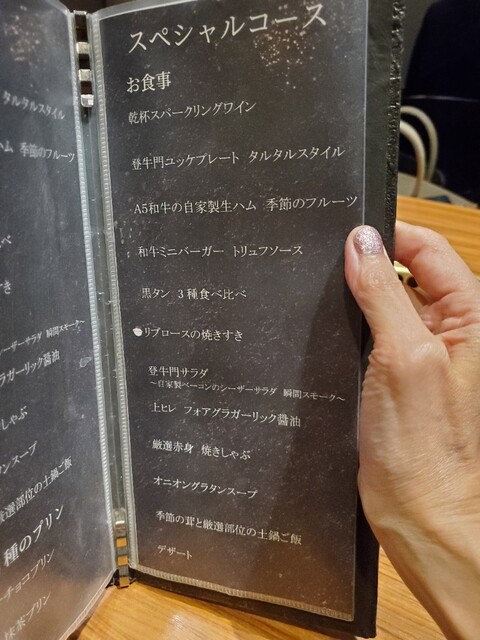 タルタルスタイル
ハム 季節のフルーツ
べ
すき
シーザーサラダ 瞬間スモーク～
ガーリック醤油
しゃぶ
タンスープ
厳選部位の土鍋ご飯
種のプリン
チョコプリン
抹茶プリン
スペシャルコース
お食事
乾杯スパークリングワイン
登牛門ユッケプレート タルタルスタイル
A5和牛の自家製生ハム 季節のフルーツ
和牛ミニバーガー トリュフソース
黒タン 3種食べ比べ
リブロースの焼きすき
登牛門サラダ
～自家製ベーコンのシーザーサラダ 瞬間スモーク～
上ヒレ フォアグラガーリック醤油
厳選赤身 焼きしゃぶ
オニオングラタンスープ
季節の茸と厳選部位の土鍋ご飯
デザート